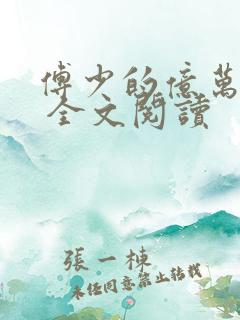 傅少的億萬
全文閱讀
張一棟
未經同意禁止轉載